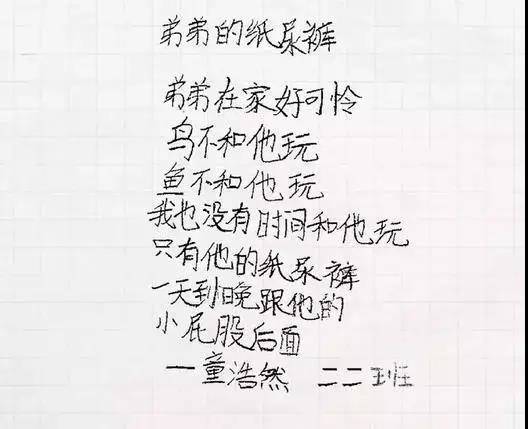 弟弟的纸尿裤
弟弟在家好可怜
鸟不和他玩
鱼不和他玩
我也没有时间和他玩
只有他的纸尿裤
一天到晚跟他的
小屁股后面
一童浩然 二二班